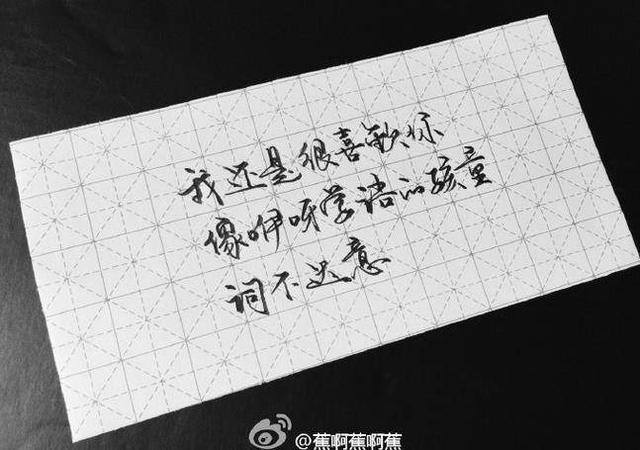 我还是很喜欢你
像咿呀学语的孩童
词不达意
@蕉啊蕉啊蕉